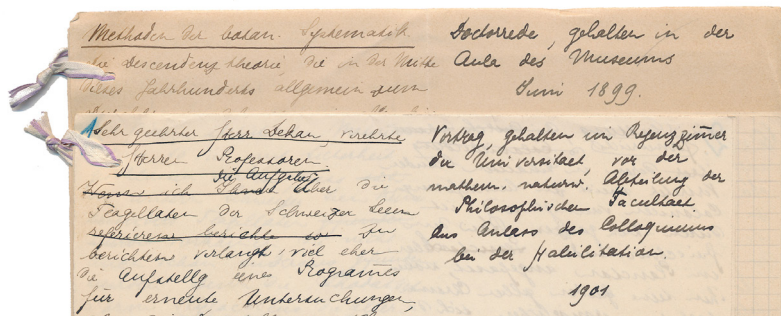 Methoden der botan. Systematik
Die Descendenztheorie, die in der Mitte
dieses Jahrhunderts allgemein zum
Doctorrede, gehalten in der
Aula des Museums
Juni 1899.
Sehr geehrter Herr Dekan, verehrte
Herren Professoren.
die Aufgabe
Wenn ich Ihnen über die
Flagellaten der Schweizer Seen
referieren berichte zu
berichten verlangt, viel eher
die Aufstellg eines Programes
für erneute Untersuchungen,
Vortrag, gehalten im Regenzzimmer
der Universitaet, vor der
mathem. naturw. Abteilung der
Philosophischen Facultaet
Aus Anlass des Colloquiums
bei der Habilitation.
1901